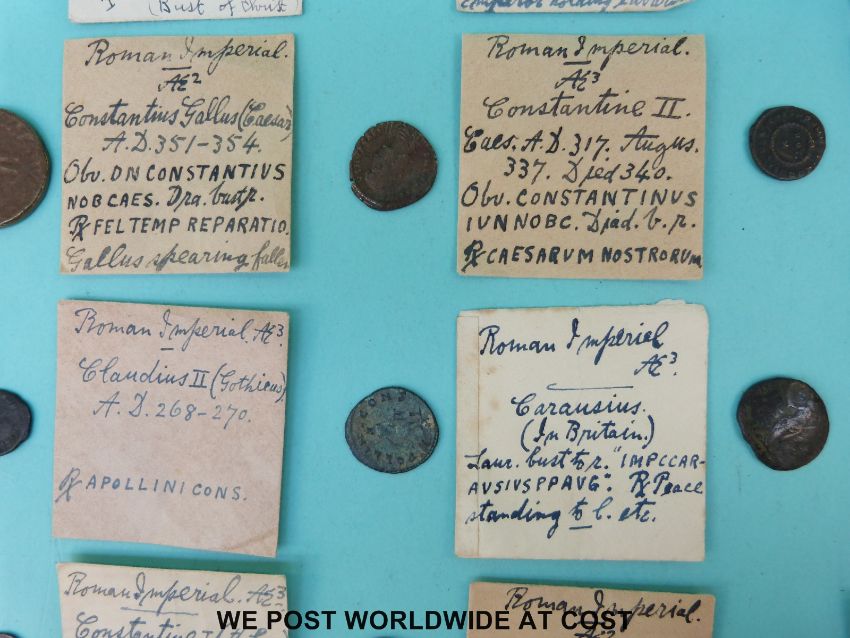 (Bust of Christ)
Emperor holding
Roman Imperial.
Æ2
Constantius Gallus (Caesar)
A.D. 351-354.
Obv. DN CONSTANTIVS
NOB CAES. Dra. bust r.
℞ FEL TEMP REPARATIO.
Gallus spearing fallen
Roman Imperial.
Æ3
Constantine II.
Caes. A.D. 317. Augus.
337. Died 340.
Obv. CONSTANTINVS
IVN NOB C. Diad. b. r.
℞ CAESARVM NOSTRORVM
Roman Imperial. Æ3
Claudius II (Gothicus).
A.D. 268-270.
℞ APOLLINI CONS.
Roman Imperial
Æ3.
Carausius.
(In Britain.)
Laur. bust to r. "IMP C CAR-
AVSIVS P P AVG". ℞ Peace
standing to l. etc.
Roman Imperial. Æ3
Roman Imperial.
WE POST WORLDWIDE AT COST